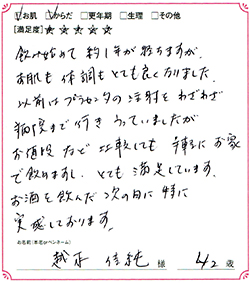 ☑お肌 ☑からだ □更年期 □生理 □その他
[満足度]☆☆☆☆☆
飲み始めて約1年が経ちますが、
お肌も体調もとても良くなりました。
以前はプラセンタの注射をわざわざ
病院まで行きうっていましたが
お値段など比較しても楽にお家
で飲めますし、とても満足しています。
お酒を飲んだ次の日に特に
実感しております。
お名前(本名orペンネーム)
越 佳純 様 42歳